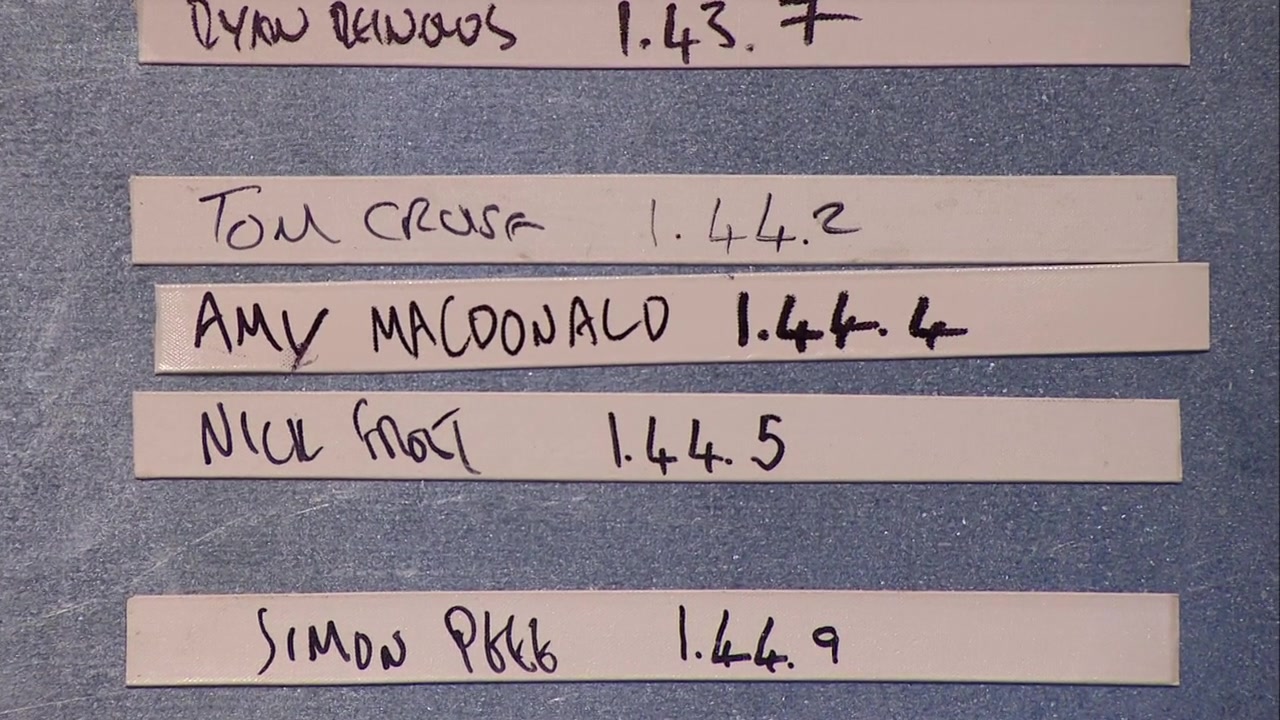 RYAN REINOLDS 1.43.7
TOM CRUISE 1.44.2
AMY MACDONALD 1.44.4
NICK FROST 1.44.5
SIMON PEGG 1.44.9